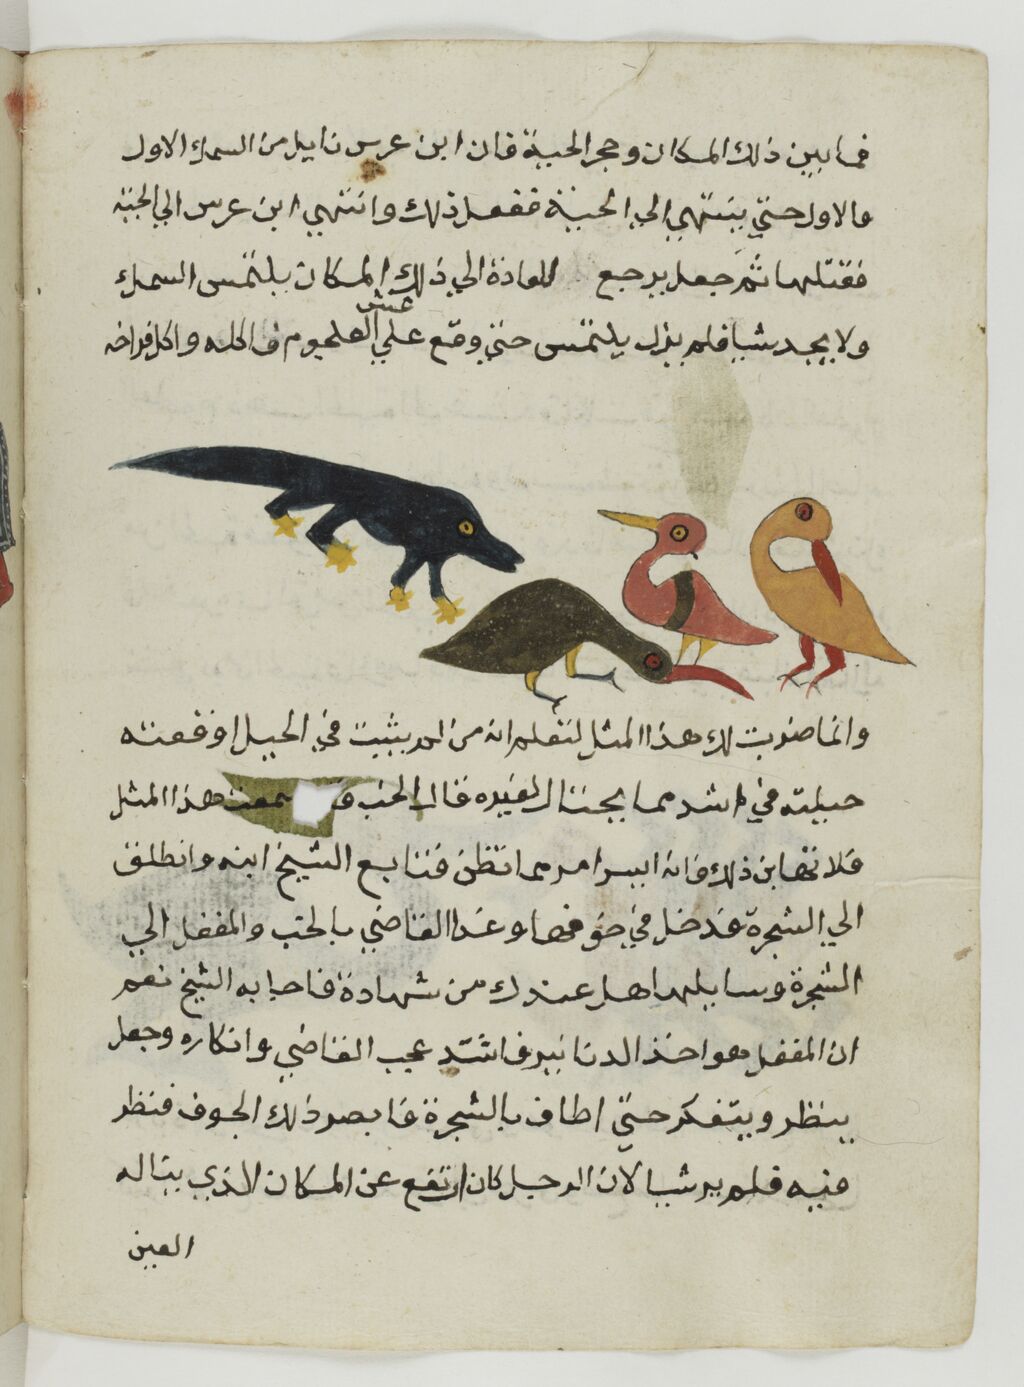 فما بين ذلك المكان وجحر الحية فان ابن عرس نايل من السمك الاول
فالاول حتي ينتهي الي الحية ففعل ذلك وانتهي ابن عرس الي الحية
فقتلها ثم جعل يرجع للعادة الي ذلك المكان يلتمس السمك
عش
ولا يجد شيا فلم يزل يلتمس حتي وقع علي العلجوم فاكله واكل فراخه
وانما ضربت لك هذا المثل لتعلم انه من لم يثبت في الحيل اوقعته
حيلته في اشد مما يحتال لغيره قال الخب سمعت هذا المثل
فلا تهابن ذلك فانه ايسر امر مما تظن فتابع الشيخ ابنه وانطلق
الي الشجرة فدخل في جوفها وغدا القاضي بالخب والمغفل الي
الشجرة وسايلها هل عندك من شهادة فاجابه الشيخ نعم
ان المغفل هو اخذ الدنانير فاشتد عجب القاضي وانكاره وجعل
ينظر ويتفكر حتي اطاف بالشجرة فابصر ذلك الجوف فنظر
فيه فلم ير شيا لان الرجل كان ارتفع عن المكان الذي يناله
العين